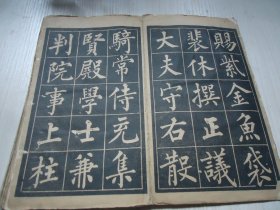 賜紫金魚袋
裴休撰正議
大夫守右散
騎常侍充集
賢殿學士兼
判院事上柱